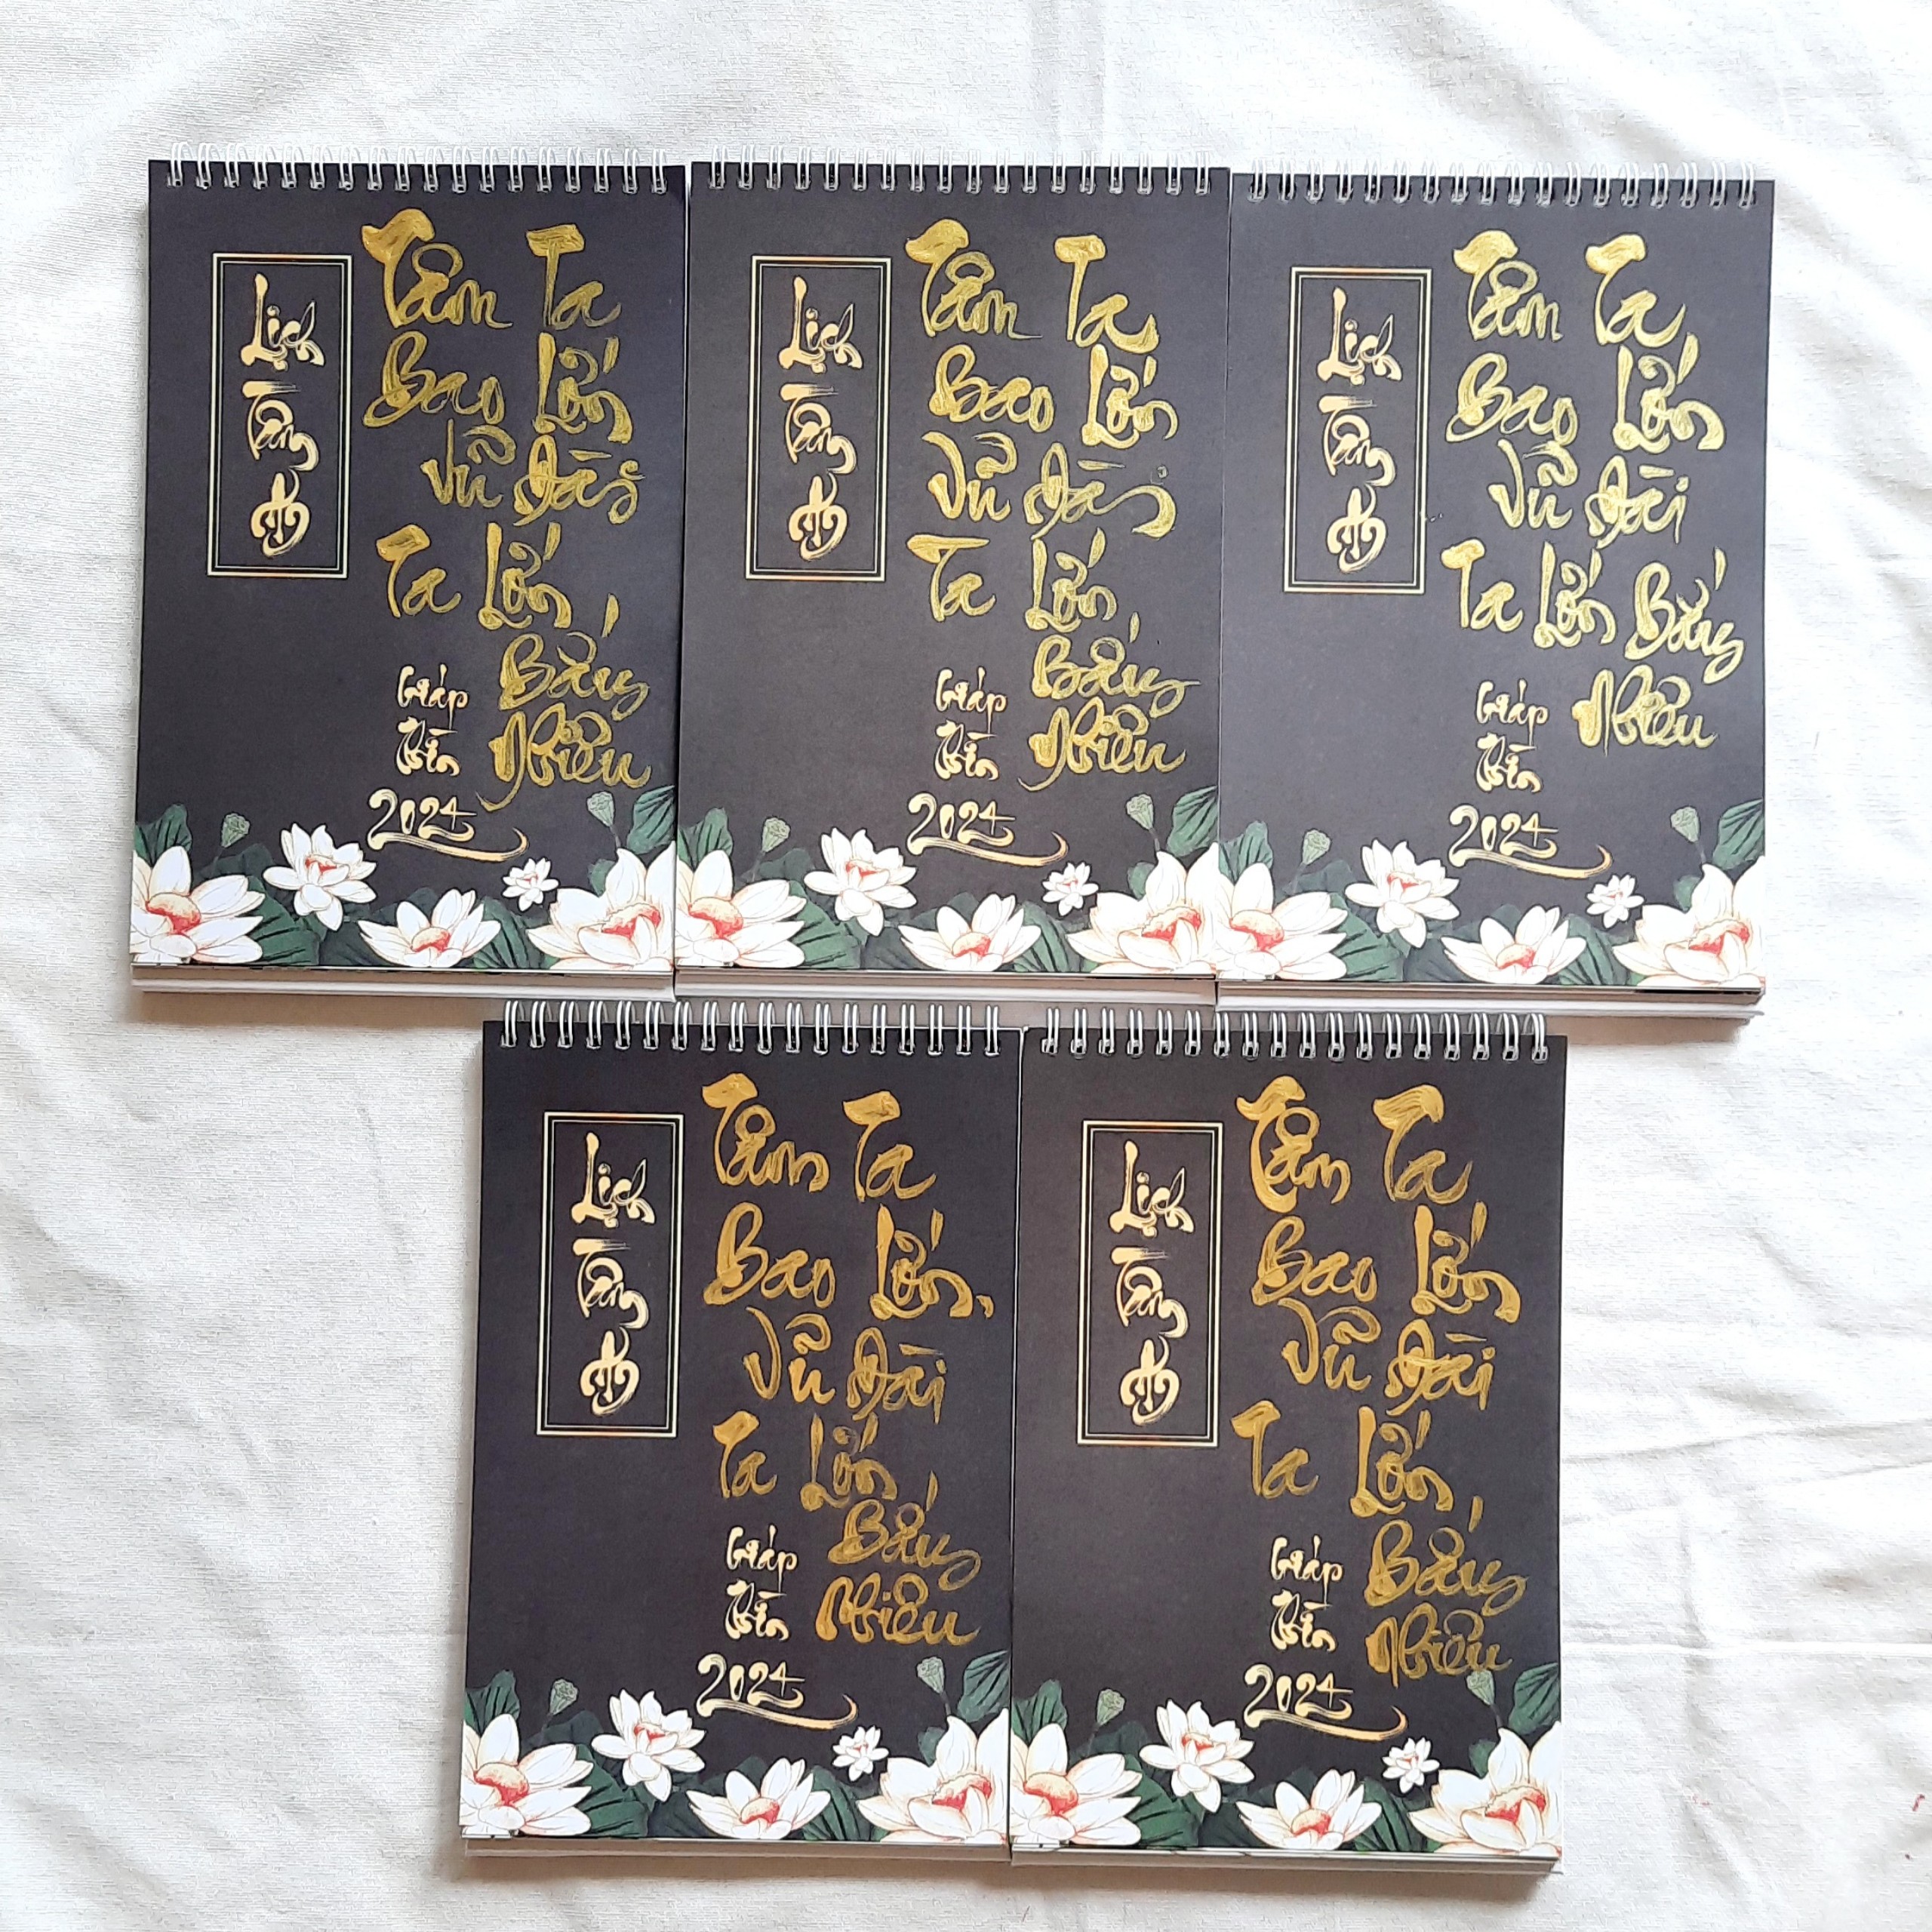 Lịch
Tâm Ta
Bao Lớn
Vũ Đài
Ta Lớn
Bấy
Nhiêu
Giáp
Thìn
2024
Lịch
Tâm Ta
Bao Lớn
Vũ Đài
Ta Lớn
Bấy
Nhiêu
Giáp
Thìn
2024
Lịch
Tâm Ta
Bao Lớn
Vũ Đài
Ta Lớn Bấy
Nhiêu
Giáp
Thìn
2024
Lịch
Tâm Ta
Bao Lớn
Vũ Đài
Ta Lớn
Bấy
Nhiêu
Giáp
Thìn
2024
Lịch
Tâm Ta
Bao Lớn
Vũ Đài
Ta Lớn
Bấy
Nhiêu
Giáp
Thìn
2024